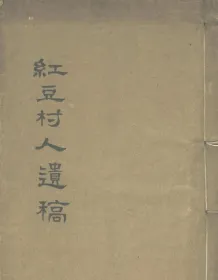 紅豆村人遺稿